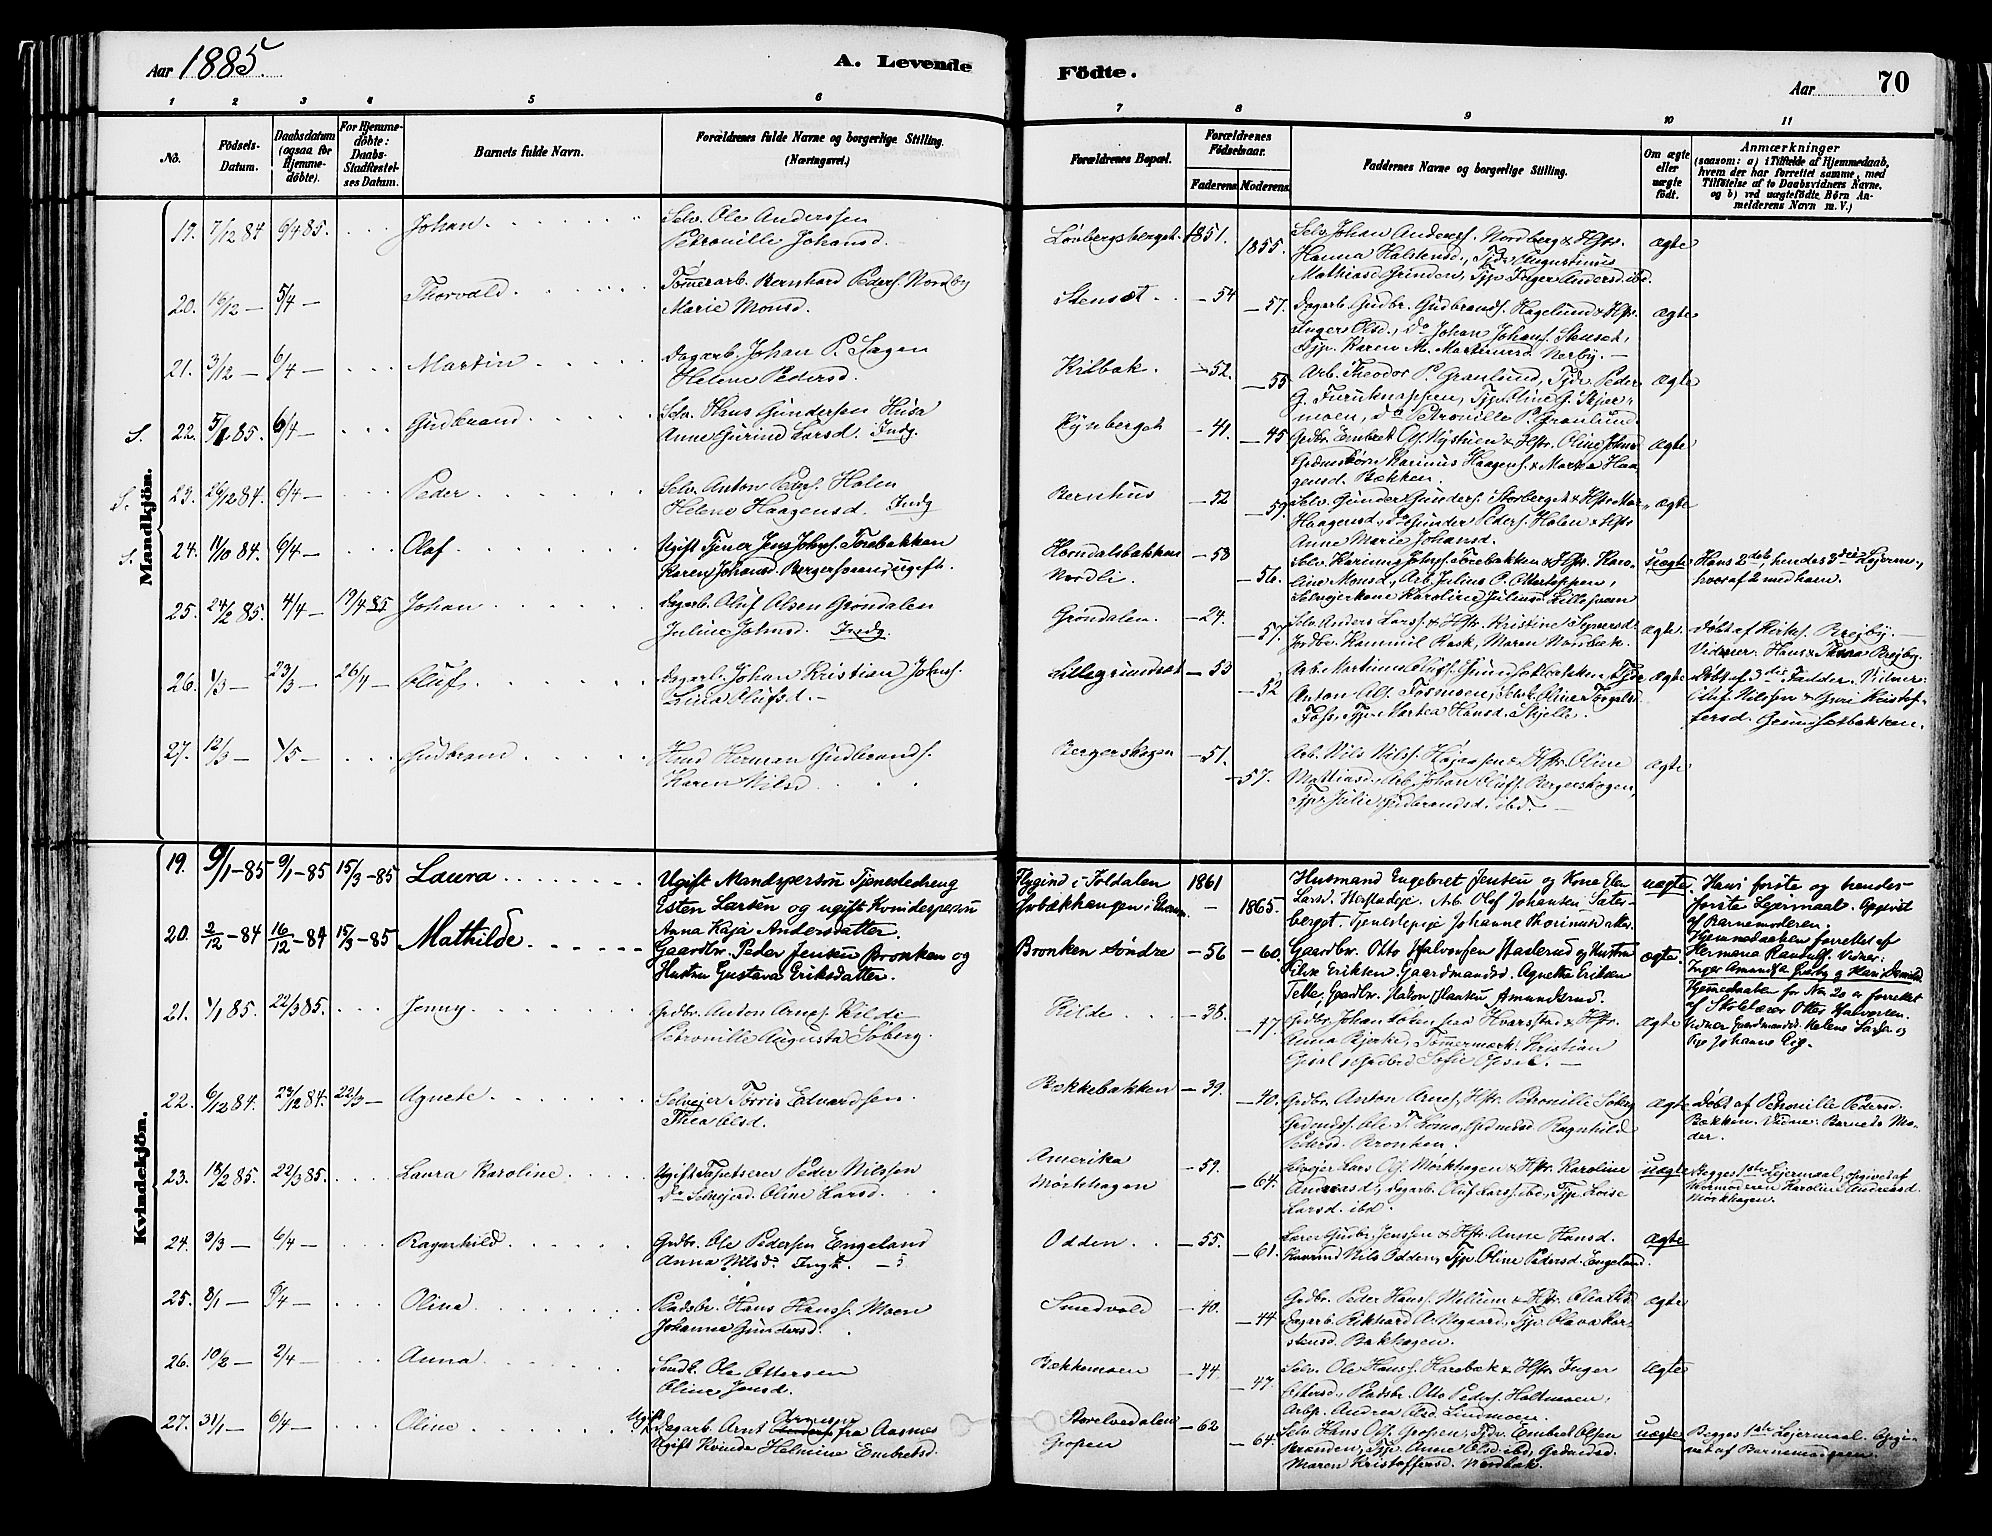 Aar 1885.
A. Levende
Födte.
Aar
70
1 2 3 4 5 6 7 8 9 10 11
No.
Födsels-Datum.
Daabsdatum (ogsaa for Hjemme-döbte).
For Hjemme-döbte: Daabs-Stadfæstel-ses Datum.
Barnets fulde Navn.
Forældrenes fulde Navne og borgerlige Stilling. (Næringsvei.)
Forældrenes Bopæl.
Forældrenes Födselsaar.
Faderens Moderens.
Faddernes Navne og borgerlige Stilling.
Om ægte eller uægte födt.
Anmærkninger
(saasom: a) i Tilfælde af Hjemmedaab, hvem der har forrettet samme, med Tilföielse af to Daabsvidners Navne, og b) ved uægtefödte Börn An-melderens Navn m. V.)
Mandkjön.
19. 7/12 84 6/4 85. Johan
Selv. Ole Anderssen
Petronille Johansd.
Lövbergsberget. 1851. 1855.
Selv. Johan Anders. Nordberg & Hstr.
Hanna Halstensd., Tjdr. Augustinus
Mathiass Grinden, Tjp. Inger Andersd. ibd.
ægte
20. 16/12 — 5/4 — Thorvald
Tømerarb. Bernhard Peders. Nordby
Marie Monsd.
Stensæt — 54 — 57.
Dagarb. Gudbr. Gudbrands. Hagelund & Hstr.
Inger Olsd., Do Johan Johans. Stenset,
Tjp. Karen M. Martinusd. Nerby. —
ægte
21. 3/12 — 6/4 — Martin
Dagarb. Johan P. Hagen
Helene Pedersd.
Kilbak. — 52. — 55
Arb. Theodor P. Granlund, Tjdr. Peder
G. Furuknappen, Tjp. Oline G. Skjær-
moen, do Petronille P. Granlund
ægte
S. 22. 5/1 85. 6/4 — Gudbrand
Selv. Hans Gundersen Husa
Anne Gurine Larsd. Indg.
Rynberget — 41. — 45
Grdbr. Embret Ols. Nystuen & Hstr. Oline Johnsd
Grdmsbörn Karinus Haagens. & Martea Haa
gensd. Bækken.
ægte
S. 23. 26/12 84. 6/4 — Peder
Selv. Anton Peders. Holen
Helene Haagensd. Indg
Bernhus — 52 — 59.
Selv. Gunder Gunders. Storberget & Hstr. Mar.
Haagensd., Do Gunder Peders. Holen & Hstr
Anne Marie Johansd.
ægte
S. 24. 11/10 84. 6/4 — Olaf
Ugift Tjener Jens Johns. Torebakken
Karen Johansd. Bergersveen ugift.
Horndalsbakken
Nordli. — 58 — 56.
Selv. Karinus Johs. Torebakken & Hstr. Karo-
line Monsd., Arb. Julius O. Ottertoppen,
Selvejerkone Karoline Juliusd Lillesveen
uægte
Hans 2det, hendes 3die Lejerm.,
hvoraf 2 med ham.
25. 24/2 85. 4/4 — 19/4 85 Johan
Dagarb. Oluf Olsen Gröndalen
Juline Johnsd. Indg.
Gröndalen. — 24. — 57.
Selv. Anders Larss. & Hstr. Kristine Syversd.
Jordbr. Hammil Rask, Maren Nordbak.
ægte.
Döbt af Kirkes. Brejby. —
Vidner. Hans & Thea Brejby.
26. 1/3 — 23/3 — 26/4 — Oluf
Dagarb. Johan Kristian Johns.
Lina Olufsd. —
Lillegrundset — 53 — 52
Arb. Martinus Olufs. Grundsetbakken, Tjdr
Anton Ols. Tormoen, Selv. Oline Torgalsd.
Foss, Tjp. Martea Hansd. Stjelle.
ægte
Döbt af 3die Fadder. Vidner
Oluf Nilssen & Guri Kristof-
fersd. Grundsetbakken.
27. 12/3 — 1/5 — Gudbrand
Hmd Herman Gudbrands.
Karen Nilsd
Bergerskogen — 51. — 57.
Arb. Nils Nilss. Højaasen & Hstr. Oline
Mathiasd., Arb. Johan Olufs. Bergerskogen,
Tjp. Julie Gudbrandsd. ibd. —
ægte
Kvindekjön.
19. 9/1 — 85 9/1 — 85 15/3 — 85 Laura
Ugift Mandsperson Tjenestedreng
Esten Larsen og ugift Kvindesperson
Anna Kaja Andersdatter.
Flygind i Foldalen
Grøbækhaugen i Elverum 1861 — 1865.
Husmand Engebret Jensen og Kone Elen
Larsd. Hoftadeje. Arb. Olaf Johansen Sater-
berget. Tjenestepige Johanne Thorinusdatter.
uægte.
Hans første og hendes
første Lejermaal. Opgivet
af Barnemoderen.
Hjemmedaaben forrettet af
Hermana Randulf. Vidner:
Inger Amundsd. Grøtby og Hans
20. 2/12 — 84 16/12 — 84 15/3 — 85 Mathilde
Gaardbr. Peder Jensen Bronken og
Hustru Gustava Eriksdatter.
Bronken Söndre — 56 — 60.
Gaardbr. Otto Halvorsen Haderud og Hustru
Eline Eriksen. Gaardmandsd. Agnethe Eriksen
Telle, Gaardbr. Hakon Hansen Amundsrud.
ægte.
Hjemmedaaben for No 20 er forrettet
af Skolelærer Otter Halvorsen.
Vidner Gaardmandsd. Helene Larsen og
Pige Johanne Lie.
21. 1/1 85. 22/3 85. Jenny
Grdbr. Anton Arnes. Kilde
Petronille Augusta Söberg.
Kilde — 38. — 47.
Grdbr. Johan Larsen paa Hvarstad & Hstr.
Anna Bjerke, Tømermærk. Kristian
Gisel, Grdbrd Sofie Opset. —
ægte
22. 6/12 84. 23/12 84. 22/3 — Agnete
Selvejer Torris Edvardsen
Thea Olsd.
Bækkebakken — 39. — 40.
Grdbr. Anton Arnes, Hstr. Petronille Söberg
Grdmdss. Ole T. Lomo, Grdmdsd Ragnhild
Pedersd. Bronken.
ægte
Döbt af Petronille Pedersd.
Bækken. Vidne: Barnets Mo-
der.
23. 18/2 85. 22/3 85. Laura Karoline
Ugift Tapetserer Peder Nilssen
Do Selvejerd. Oline Larsd.
Amerika
Mörkhagen — 59. — 64.
Selvejer Lars Ols. Mörkhagen & Hstr. Karoline
Andreasd., Dagarb. Oluf Larss. ibd, Tjp. Loise
Larsd. ibd.
uægte
Begges 1ste Lejermaal, opgivet af
Mormoderen Karoline Andreasd.
Mörkhagen.
24. 3/3 — 6/4 — Ragnhild
Grdbr. Ole Pedersen Engeland
Anna Nilsd. Ingt.
Odden. — 55. — 61.
Lærer Gudbr. Jenssen & Hstr. Anne Hansd.
Havrud Nils Odden, Tjp. Oline Pedersd. Engeland.
ægte
25. 8/1 — 6/4 — Olina
Pladsbr. Hans Hanss. Moen
Johanne Gundersd.
Smedvold — 40. — 44
Grdbr. Peder Hanss. Millum & Hstr. Olia Olsd
Dagarb. Rikhard A. Nygaard, Tjp. Olava Kar-
stensd. Bakhagen.
ægte
26. 10/2 — 2/4 — Anna
Indb. Ole Ottersen
Oline Jensd.
Bækkemoen — 44. — 47.
Selv. Ole Hanss. Harebæk & Hstr Inger
Estensd., Pladsbr. Otto Peders. Holtmoen,
Arbp. Andrea Olsd. Lindmoen.
ægte
27. 31/1 — 6/4 — Oline
Ugift Dagarb. Arnt fra Aasnes
Ugift Kvinde Helmine Embretsd.
Storelvedalen
Gropen — 62 — 64.
Selv. Hans Ols. Gropen, Tjdr. Embret Olsen
Brænden, Tjp. Anne Olsd. ibd., Grdmdsd.
Maren Kristoffersd. Nordbak.
uægte
Begges 1ste Lejermaal. Opgi-
vet af Barnemoderen.